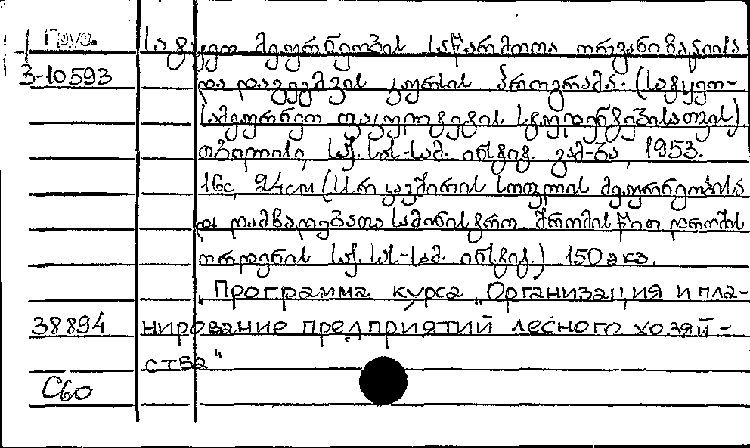 Груз. სატყეო მეურნეობის საწარმოთა ორგანიზაციისა
3-10593 და დაგეგმვის კურსის პროგრამა. (სატყეო-
სამეურნეო ფაკულტეტის სტუდენტებისათვის)
თბილისი, საქ. სას.-სამ. ინსტიტ. გამ-ბა, 1953.
16с, 24см (სსრ კავშირის სოფლის მეურნეობისა
და დამზადებათა სამინისტრო. შრომის წით. დროშის
ორდენის საქ. სას.-სამ. ინსტიტ.) 150 экз.
„Программа курса „Организация и пла-
38894 нирование предприятий лесного хозяй-
ства"
С60